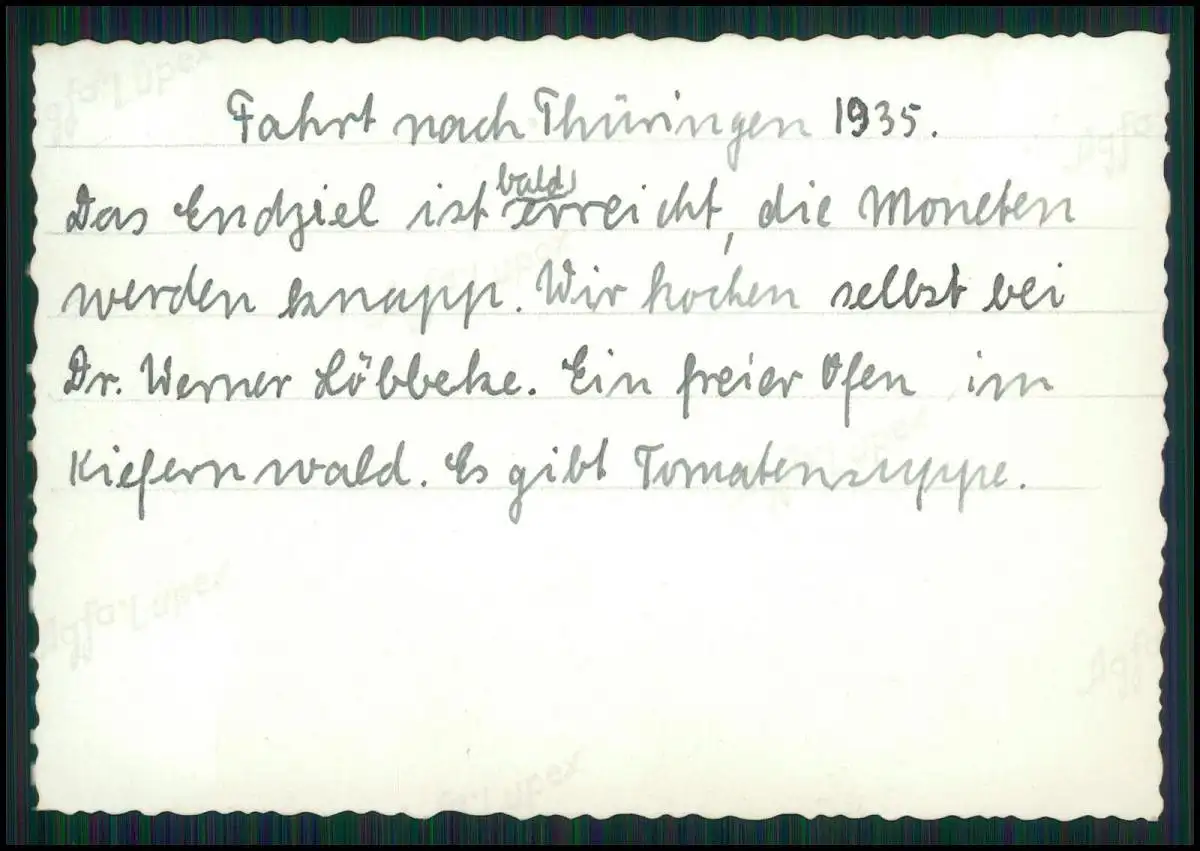 Fahrt nach Thüringen 1935.
Das Endziel ist bald erreicht, die Moneten
werden knapp. Wir kochen selbst bei
Dr. Werner Löbbeke. Ein freier Ofen im
Kiefernwald. Es gibt Tomatensuppe.
Agfa-Lupex
Agfa-Lupex
Agfa-Lupex